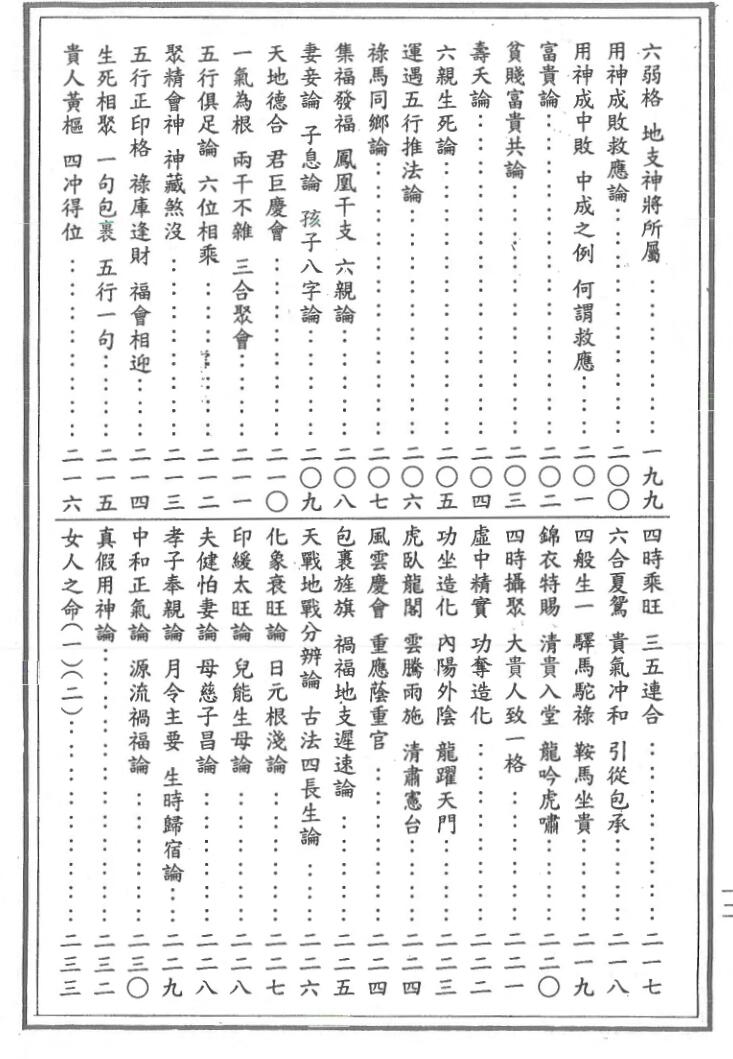 六弱格 地支神將所屬……一九九
用神成敗救應論……二〇〇
用神成中敗 中成之例 何謂救應……二〇一
富貴論……二〇二
貧賤富貴共論……二〇三
壽夭論……二〇四
六親生死論……二〇五
運遇五行推法論……二〇六
祿馬同鄉論……二〇七
集福發福 鳳凰干支 六親論……二〇八
妻妾論 子息論 孩子八字論……二〇九
天地德合 君臣慶會……二一〇
一氣為根 兩干不雜 三合聚會……二一一
五行俱足論 六位相乘……二一二
聚精會神 神藏煞沒……二一三
五行正印格 祿庫逢財 福會相迎……二一四
生死相聚 一句包裹 五行一句……二一五
貴人黃樞 四冲得位……二一六
四時乘旺 三五連合……二一七
六合夏鴛 貴氣冲和 引從包承……二一八
四般生一 驛馬駝祿 鞍馬坐貴……二一九
錦衣特賜 清貴入堂 龍吟虎嘯……二二〇
四時攝聚 大貴人致一格……二二一
虛中精實 功奪造化……二二二
功坐造化 內陽外陰 龍躍天門……二二三
虎臥龍閣 雲騰雨施 清肅憲台……二二四
風雲慶會 重應蔭重官……二二四
包裹旌旗 禍福地支遲速論……二二五
天戰地戰分辨論 古法四長生論……二二六
化象衰旺論 日元根淺論……二二七
印緩太旺論 兒能生母論……二二八
夫健怕妻論 母慈子昌論……二二八
孝子奉親論 月令主要 生時歸宿論……二二九
中和正氣論 源流禍福論……二三〇
真假用神論……二三二
女人之命(一)(二)……二三三
二